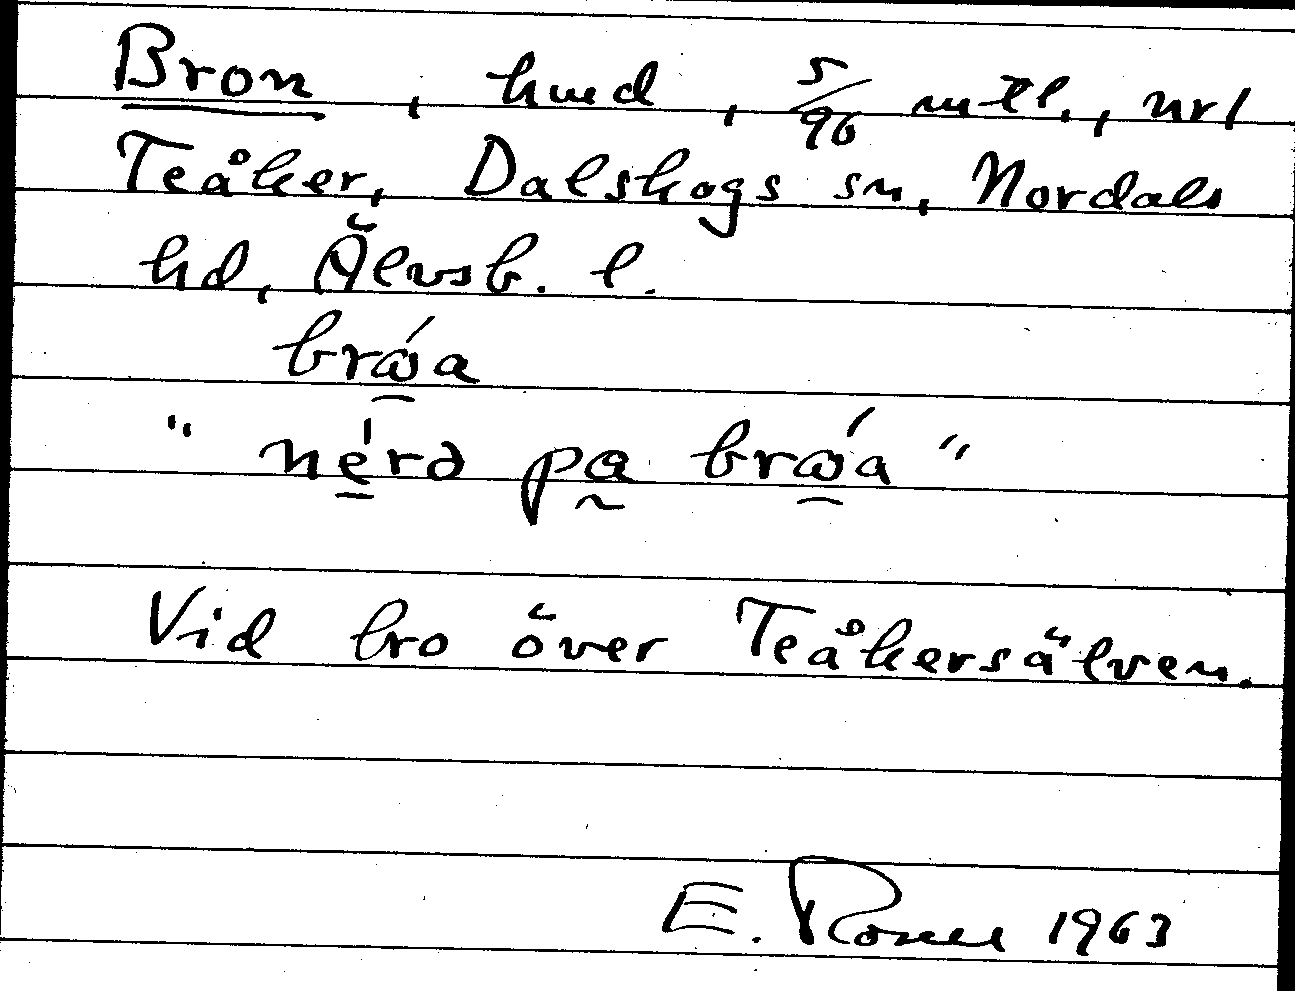 Bron, hmd, 5/96 mtl., nr 1
Teåker, Dalskogs sn, Nordals
hd, Älvsb. l.
brώa
" nérə pɑ brώa "
Vid bro över Teåkersälven.
E. 1963